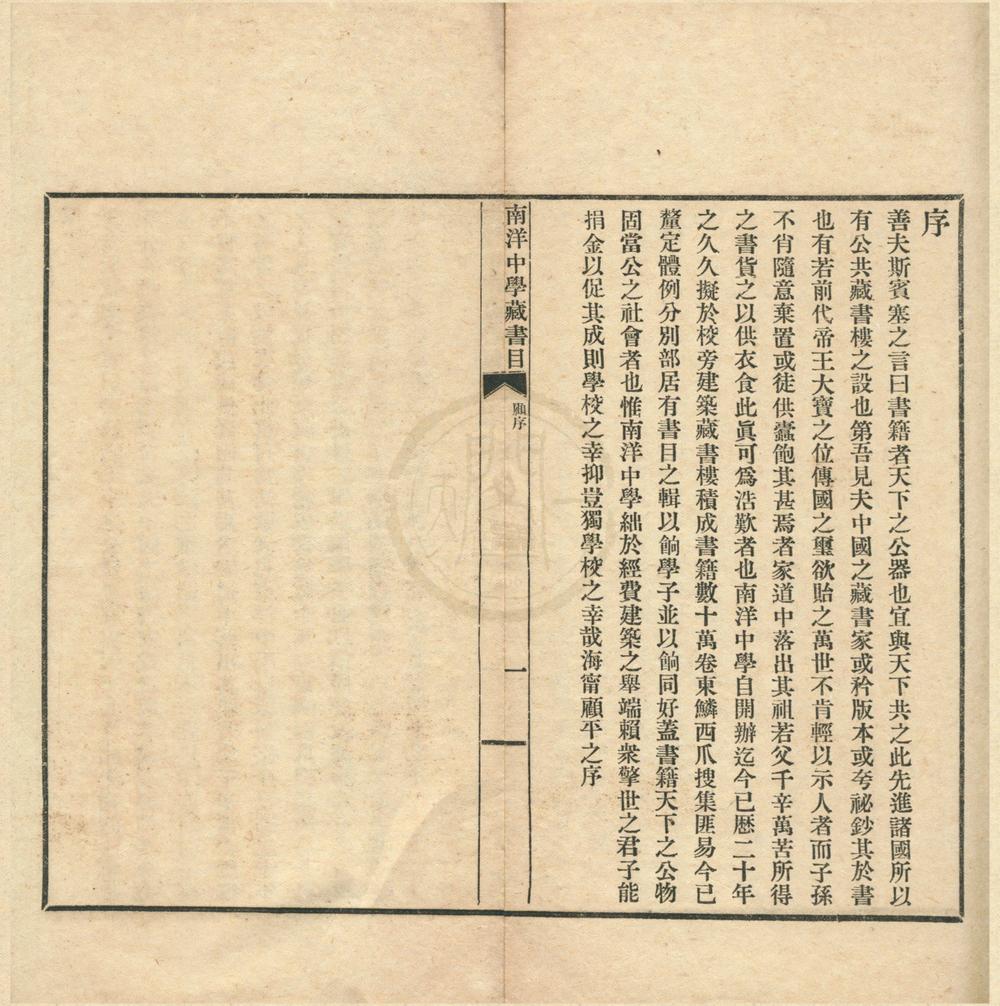 序
善夫斯賓塞之言曰書籍者天下之公器也宜與天下共之此先進諸國所以
有公共藏書樓之設也第吾見夫中國之藏書家或矜版本或夸祕鈔其於書
也有若前代帝王大寶之位傳國之璽欲貽之萬世不肯輕以示人者而子孫
不肖隨意棄置或徒供蠹飽其甚焉者家道中落出其祖若父千辛萬苦所得
之書貨之以供衣食此眞可爲浩歎者也南洋中學自開辦迄今已歷二十年
之久久擬於校旁建築藏書樓積成書籍數十萬卷東鱗西爪搜集匪易今已
釐定體例分別部居有書目之輯以餉學子並以餉同好蓋書籍天下之公物
固當公之社會者也惟南洋中學絀於經費建築之舉端賴衆擎世之君子能
捐金以促其成則學校之幸抑豈獨學校之幸哉海甯顧平之序
南洋中學藏書目
顧序
一